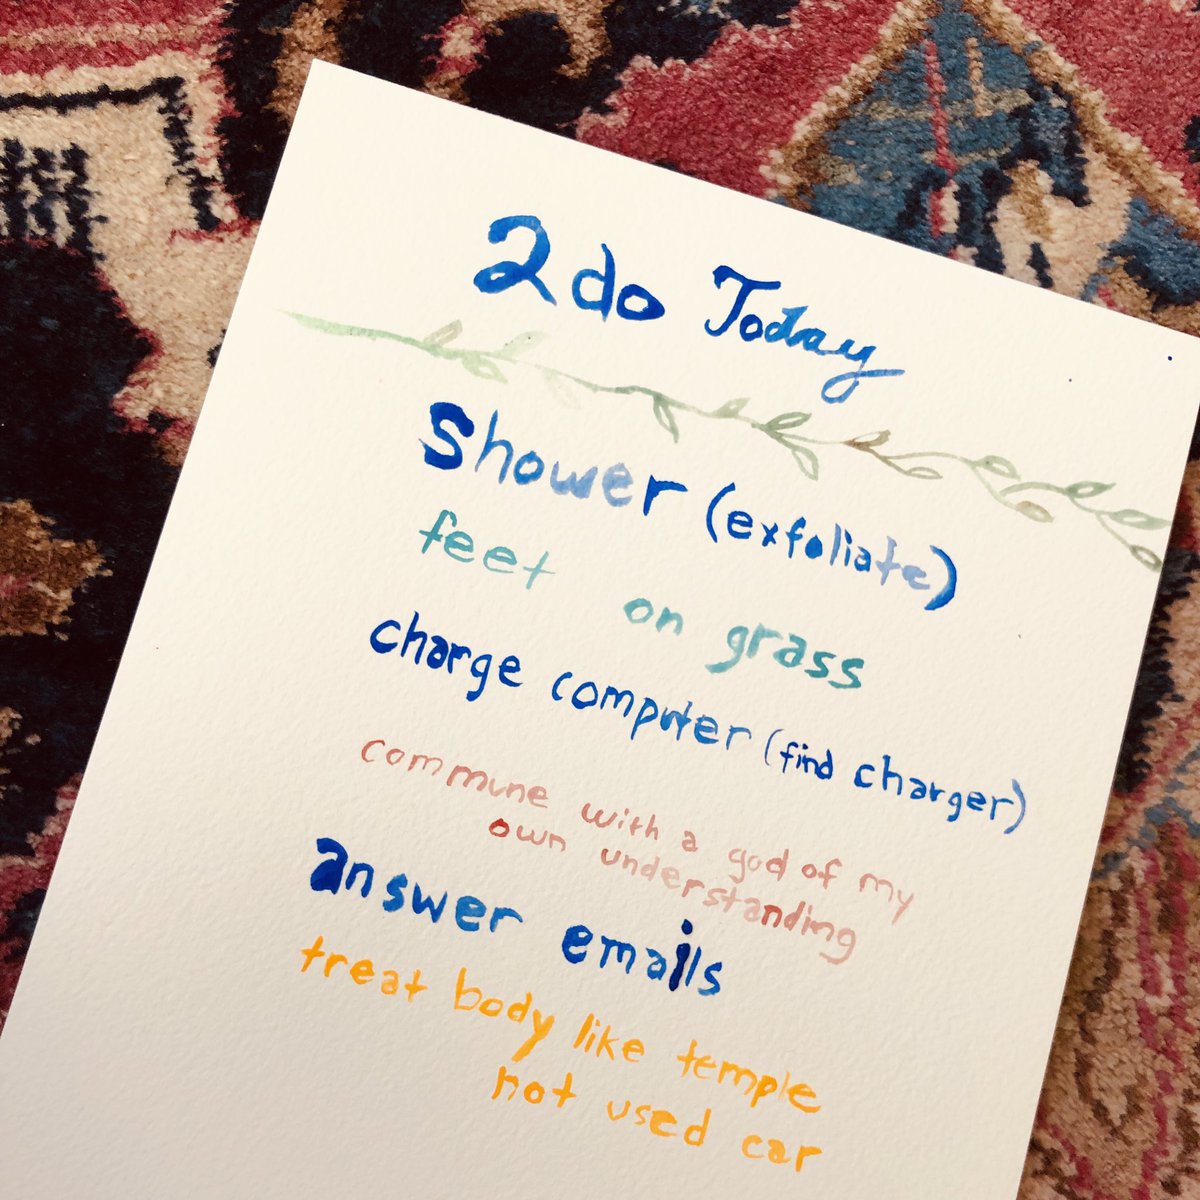 2do Today
Shower (exfoliate)
feet on grass
charge computer (find charger)
commune with a god of my
own understanding
answer emails
treat body like temple
not used car